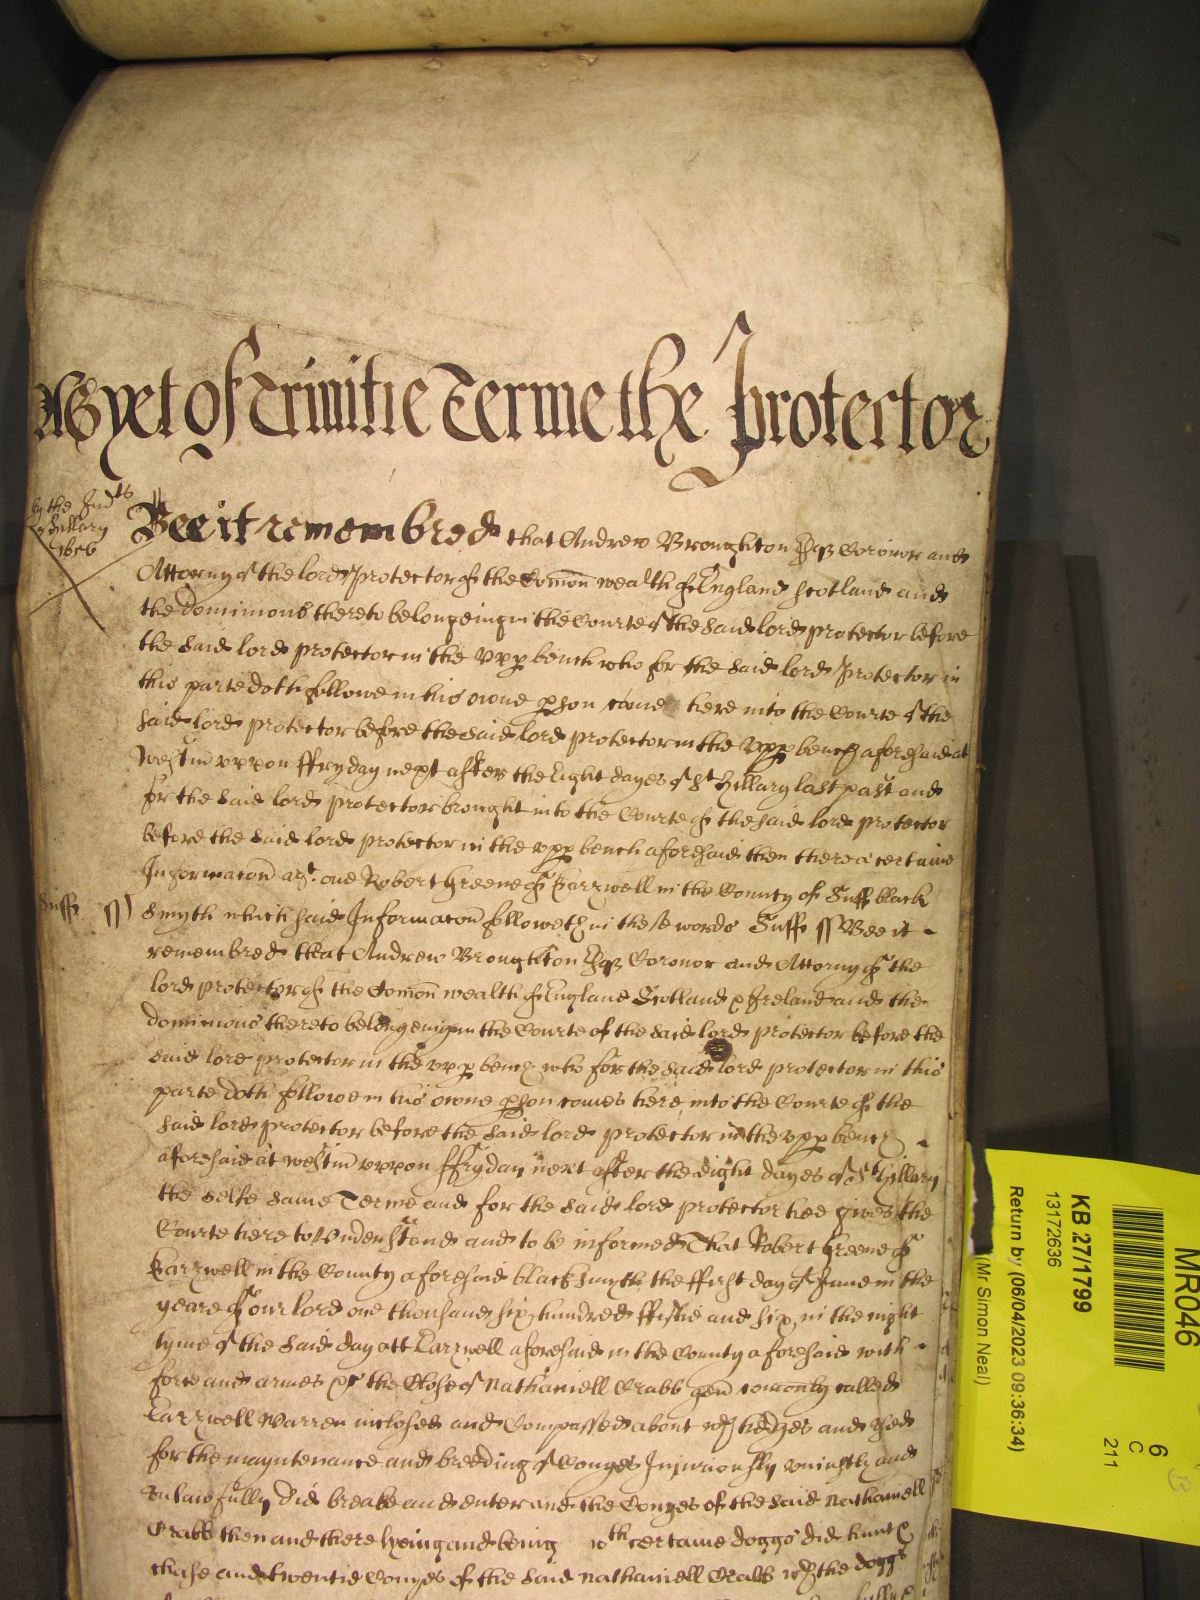 As yet of Trinitie Terme the Protector
by the Judts
of Hillary
1656
Bee it remembred that Andrew Broughton Esqr Coronor and
Attorny of the lord Protector of the Comon wealth of England Scotland and
the dominions thereto belongeing in the Courte of the said lord protector before
the said lord protector in the vpp bench who for the said lord Protector in
this parte doth followe in his owne pson came here into the Courte of the
said lord protector before the said lord protector in the vpp bench aforesaid at
Westm vppon ffryday next after the Eight dayes of St Hillary last past and
for the said lord protector brought into the Courte of the said lord protector
before the said lord protector in the vpp bench aforesaid then there a certaine
Informacon agt one Robert Greene of Earzwell in the County of Suff black
Suff ss
Smyth which said Informacon followeth in these words Suff ss Bee it
remembred that Andrew Broughton Esqr Coronor and Attorny of the
lord protector of the Comon wealth of England Scotland & Ireland and the
dominions thereto belongeinge in the Courte of the said lord protector before the
said lord protector in the vpp bench who for the said lord protector in this
parte doth followe in his owne pson comes here into the Courte of the
said lord protector before the said lord protector in the vpp bench
aforesaid at Westm vppon ffryday next after the eight dayes of St Hillary
the selfe same Terme and for the said lord protector hee gives the
Courte here to Understand and to be informed That Robert Greene of
Earzwell in the County aforesaid blacksmyth the ffirst day of June in the
yeare of our lord one thousand six hundred ffiftie and six in the night
tyme of the said day att Earzwell aforesaid in the County aforesaid with
force and armes &c the Close of Nathaniell Crabb gen comonly called
Earzwell Warren inclosed and Compassed about wth hedges and
for the mayntenance and breeding of Conyes Injuriously vniustly and
vnlawfully did breake and enter and the Conyes of the said Nathaniell
Crabb then and there lyeing and being wth certaine doggs did hunt &
chase and twentie Conyes of the said Nathaniell Crabb wth the doggs
MR046
6
C
211
KB 271/1799
13172636
Return by (06/04/2023 09:36:34)
(Mr Simon Neal)